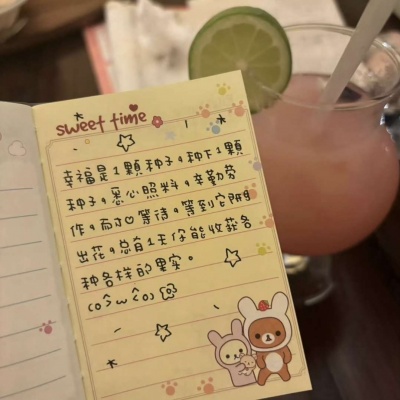 sweet time
幸福是1顆种子，种下1顆
种子，悉心照料，辛勤劳
作，耐♡等待，等到它開
出花，总有1天你能收获各
种各样的果实。